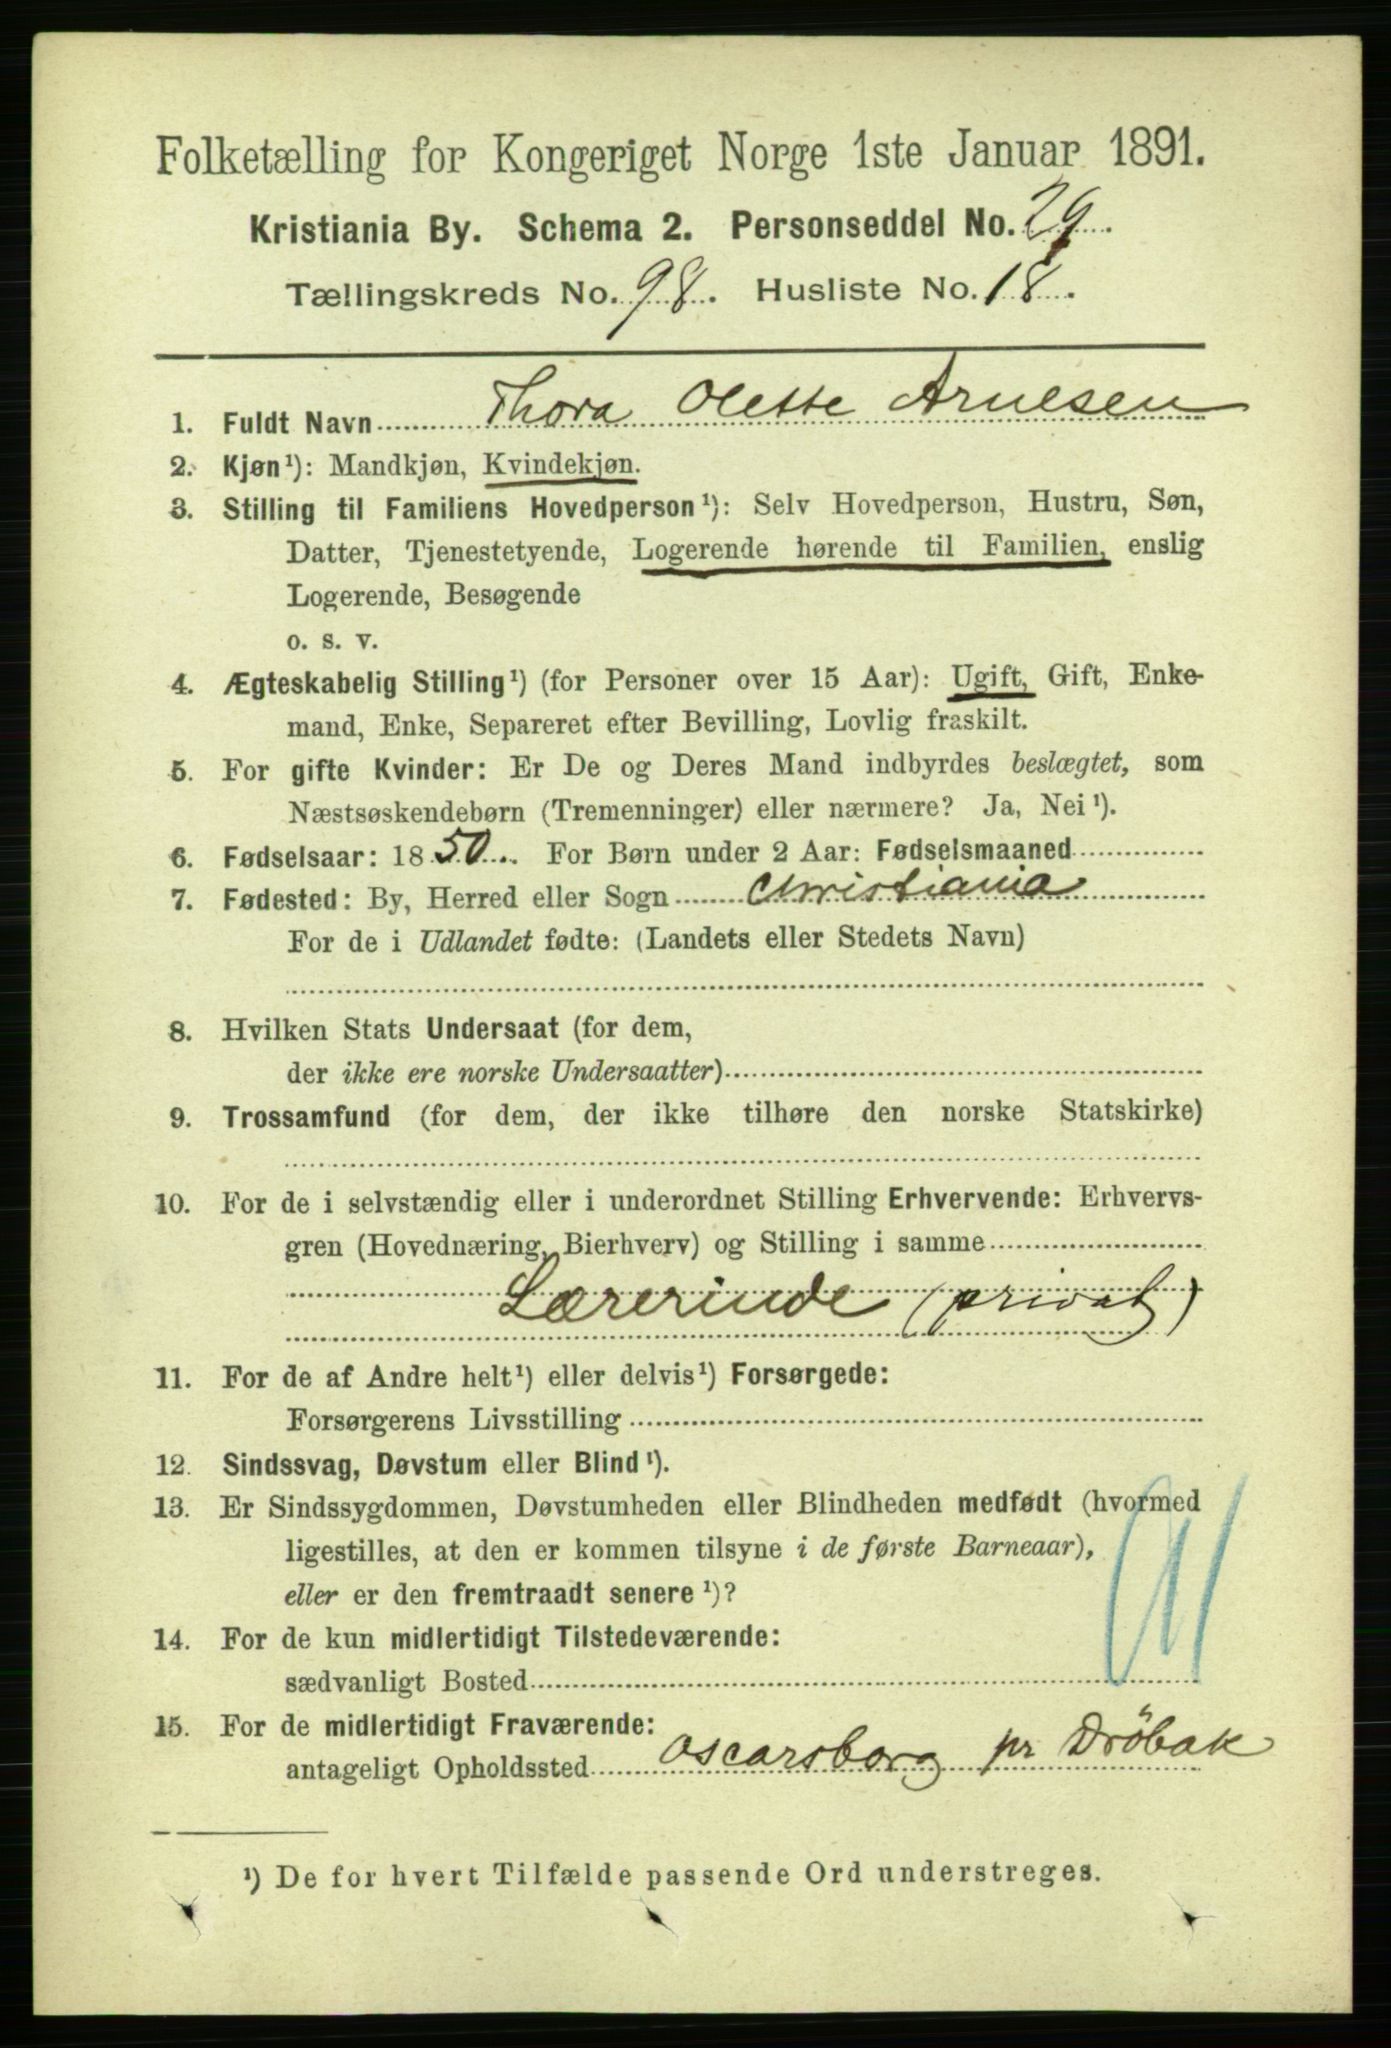 Folketælling for Kongeriget Norge 1ste Januar 1891.
Kristiania By. Schema 2. Personseddel No. 29.
Tællingskreds No. 98. Husliste No. 18.
1. Fuldt Navn Thora Olette Arnesen
2. Kjøn¹): Mandkjøn, Kvindekjøn.
3. Stilling til Familiens Hovedperson¹): Selv Hovedperson, Hustru, Søn,
Datter, Tjenestetyende, Logerende hørende til Familien, enslig
Logerende, Besøgende
o. s. v.
4. Ægteskabelig Stilling¹) (for Personer over 15 Aar): Ugift, Gift, Enke-
mand, Enke, Separeret efter Bevilling, Lovlig fraskilt.
5. For gifte Kvinder: Er De og Deres Mand indbyrdes beslægtet, som
Næstsøskendebørn (Tremenninger) eller nærmere? Ja, Nei¹).
6. Fødselsaar: 1850. For Børn under 2 Aar: Fødselsmaaned
7. Fødested: By, Herred eller Sogn Christiania
For de i Udlandet fødte: (Landets eller Stedets Navn)
8. Hvilken Stats Undersaat (for dem,
der ikke ere norske Undersaatter)
9. Trossamfund (for dem, der ikke tilhøre den norske Statskirke)
10. For de i selvstændig eller i underordnet Stilling Erhvervende: Erhvervs-
gren (Hovednæring, Bierhverv) og Stilling i samme
Lærerinde (privat)
11. For de af Andre helt¹) eller delvis¹) Forsørgede:
Forsørgerens Livsstilling
12. Sindssvag, Døvstum eller Blind¹).
13. Er Sindssygdommen, Døvstumheden eller Blindheden medfødt (hvormed
ligestilles, at den er kommen tilsyne i de første Barneaar),
eller er den fremtraadt senere¹)?
14. For de kun midlertidigt Tilstedeværende:
sædvanligt Bosted
15. For de midlertidigt Fraværende:
antageligt Opholdssted Oscarsborg pr Dröbak
¹) De for hvert Tilfælde passende Ord understreges.